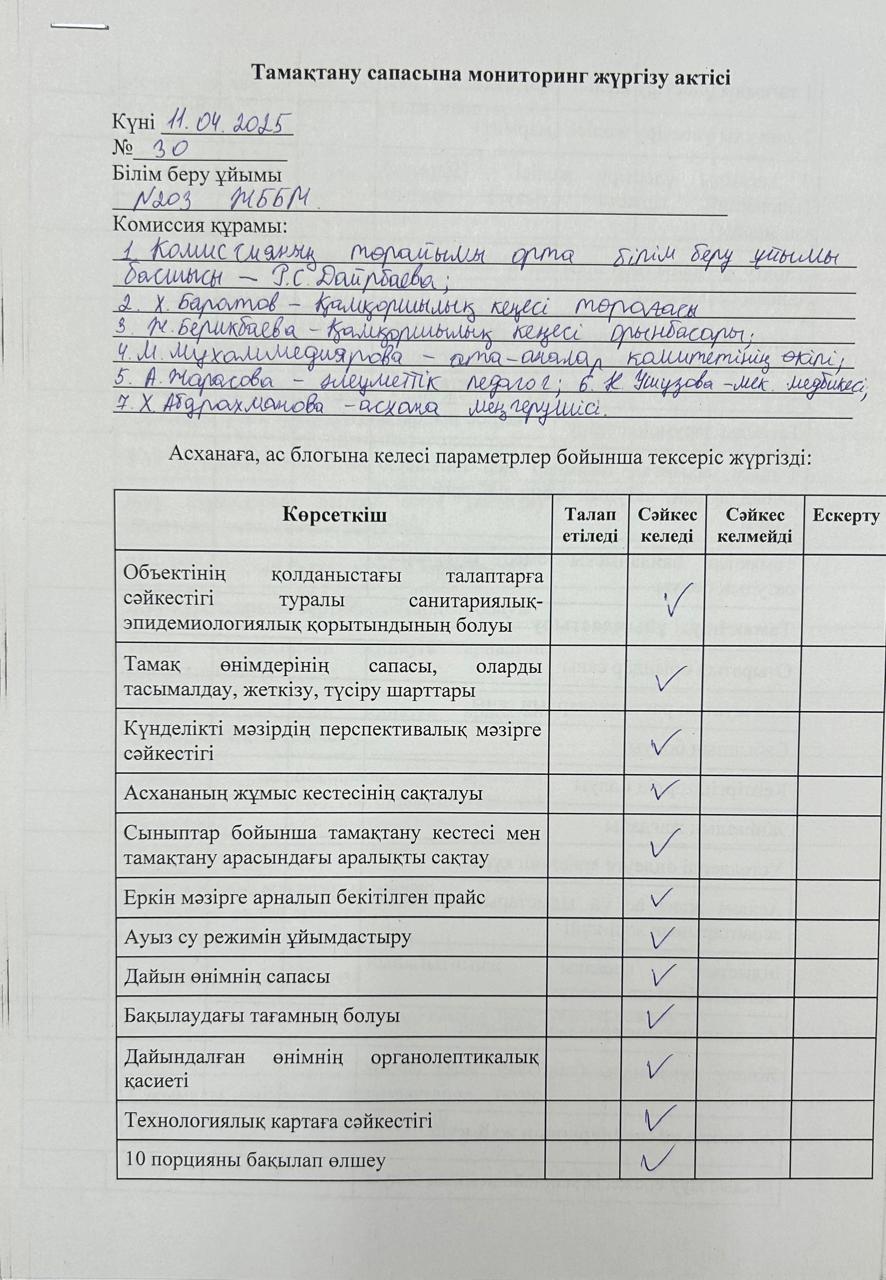 Тамақтану сапасына мониторинг жүргізу актісі
Күні 11.04.2025
№ 30
Білім беру ұйымы
N203 ЖББМ
Комиссия құрамы:
1. Комиссияның төрайымы орта білім беру ұйымы
басшысы – Р.С. Даирбаева;
2. Х. Баратов – Қамқоршылық кеңесі төрағасы
3. Ж. Берикбаева – Қамқоршылық кеңесі орынбасары;
4. М. Мухаммедиярова – ата-аналар комитетінің өкілі;
5. А. Жарасова – әлеуметтік педагог; 6. Н. Ушузова – мек. медбикесі,
7. Х. Абдрахманова – асхана меңгерушісі.
Асханаға, ас блогына келесі параметрлер бойынша тексеріс жүргізді:
Көрсеткіш Талап етіледі Сәйкес келеді Сәйкес келмейді Ескерту
Объектінің қолданыстағы талаптарға
сәйкестігі туралы санитариялық-
эпидемиологиялық қорытындының болуы ✓
Тамақ өнімдерінің сапасы, оларды
тасымалдау, жеткізу, түсіру шарттары ✓
Күнделікті мәзірдің перспективалық мәзірге
сәйкестігі ✓
Асхананың жұмыс кестесінің сақталуы ✓
Сыныптар бойынша тамақтану кестесі мен
тамақтану арасындағы аралықты сақтау ✓
Еркін мәзірге арналып бекітілген прайс ✓
Ауыз су режимін ұйымдастыру ✓
Дайын өнімнің сапасы ✓
Бақылаудағы тағамның болуы ✓
Дайындалған өнімнің органолептикалық
қасиеті ✓
Технологиялық картаға сәйкестігі ✓
10 порцияны бақылап өлшеу ✓